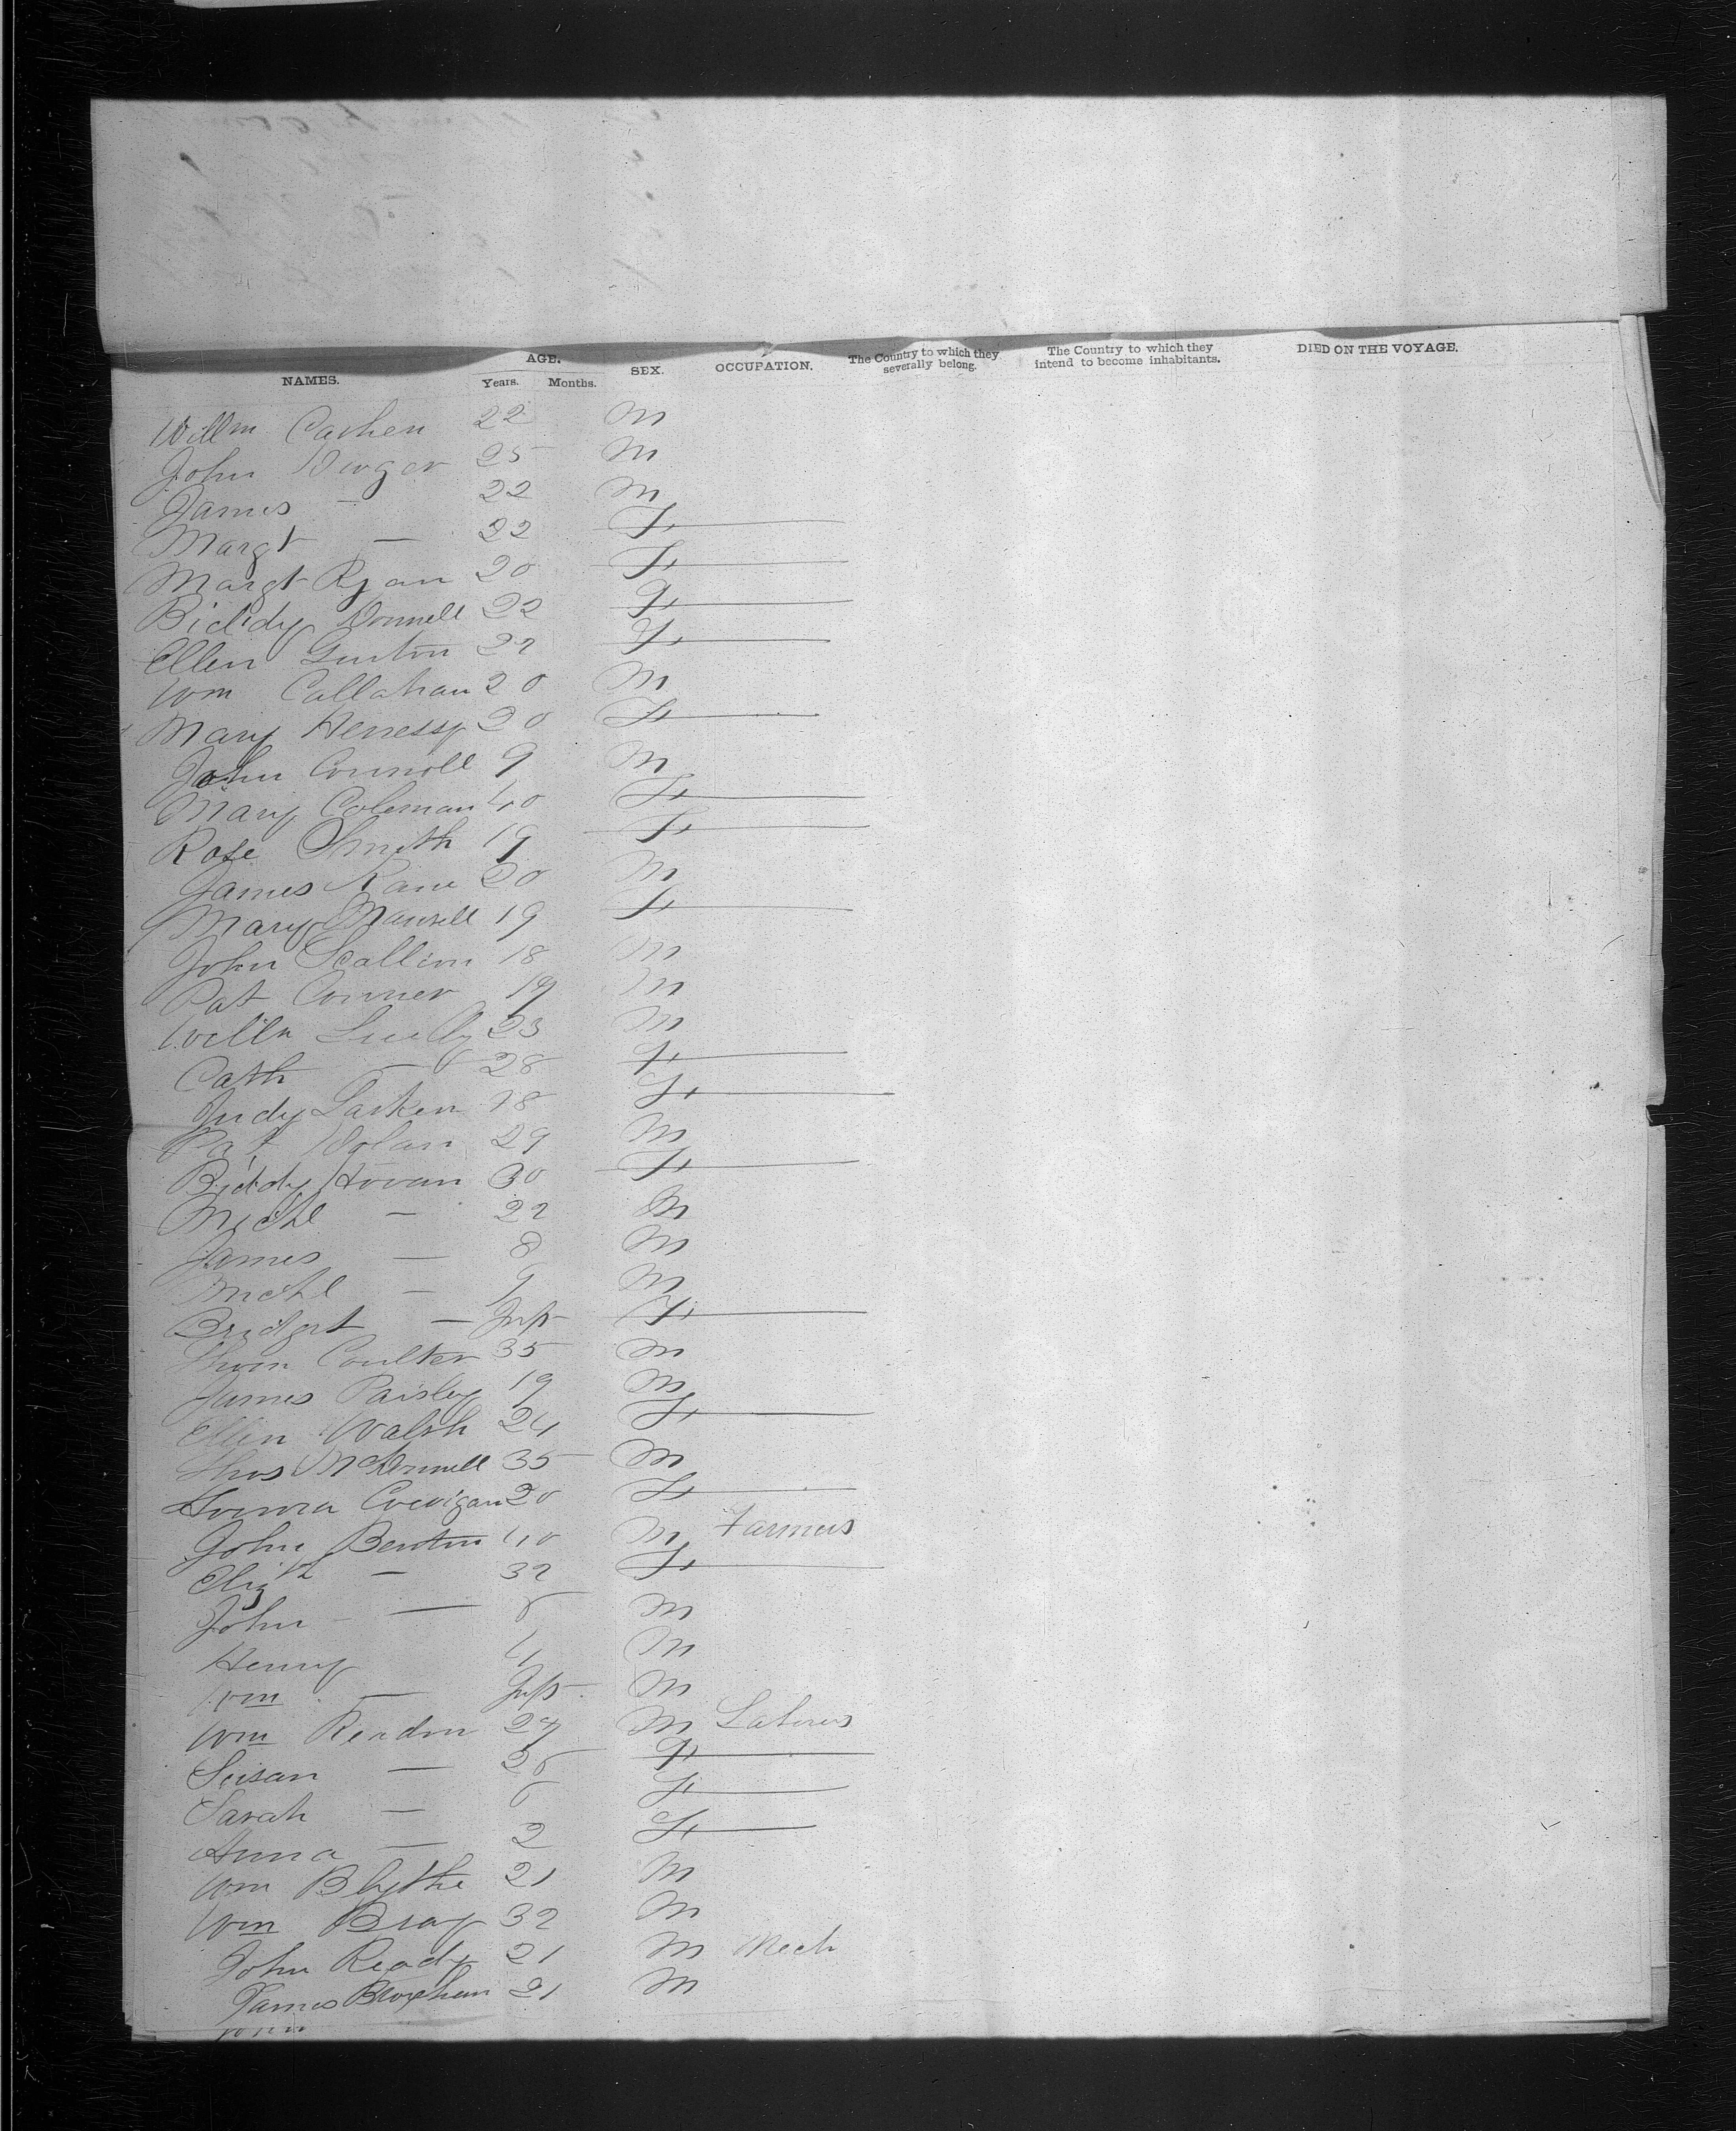 NAMES. AGE. Years. Months. SEX. OCCUPATION. The Country to which they severally belong. The Country to which they intend to become inhabitants. DIED ON THE VOYAGE.
Willm Cashen 22 M
John 25 M
James — 22 M
Margt — 22 F
Margt Ryan 20 F
Biddy Donnell 22 F
Ellen 22 F
Wm Callahan 20 M
Mary Henessy 20 F
John Connoll 9 M
Mary Coleman 40 F
Rose Smith 19 F
James Kane 20 M
Mary Mansell 19 F
John Scallion 18 M
Pat Conner 19 M
Willm 23 M
Cath — 28 F
Judy Larken 18 F
Pat Dolan 29 M
Biddy Horan 30 F
Michl — 22 M
James — 8 M
Michl — 9 M
Bridget — Inft F
Thom Coulter 35 M
James Paisley 19 M
Ellen Walsh 24 F
Thos McDonnell 35 M
Honora 20 F
John Benton 40 M Farmers
Eliz — 32 F
John — M
Henry 4 M
Wm — Inft M
Wm Reardon 27 M Laborers
Susan — F
Sarah — F
Anna — 2 F
Wm Blythe 21 M
Wm Bray 32 M
John Ready 21 M Mech
James 21 M